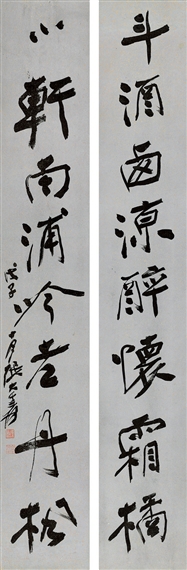 斗酒西涼醉懷霜橘
小軒南浦吟老丹楓
戊子十月張大千爰